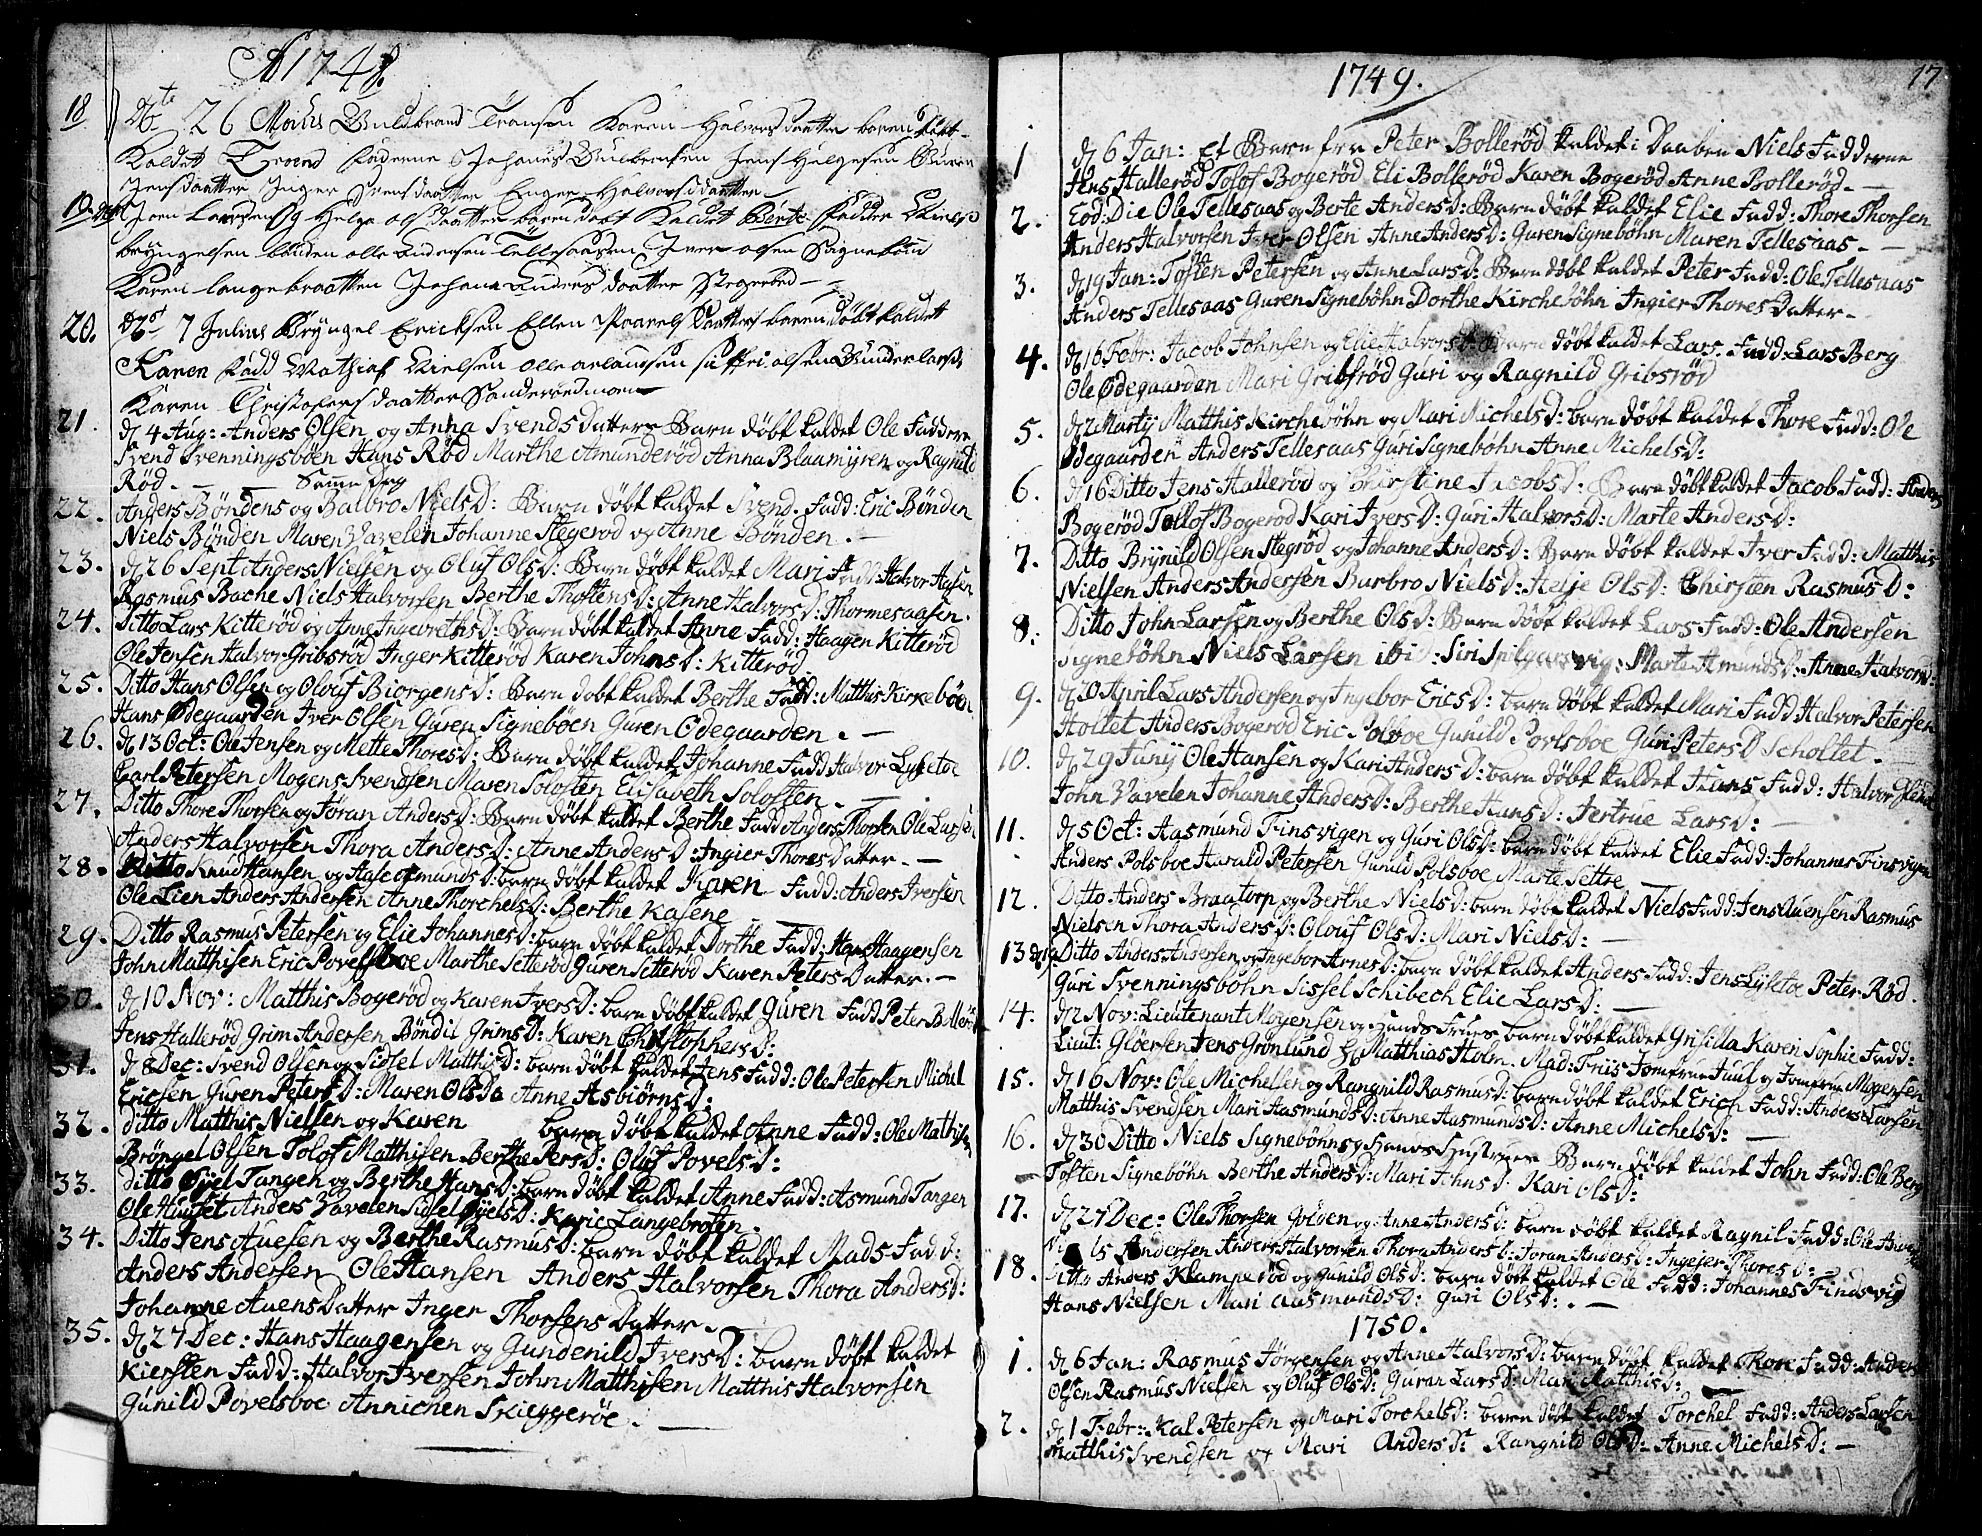 A 1748.
18
26 Guldbrand Karen Halvorsdaatter baren døbt
Kaldet Trond faderne Johanes Jens Helgesen Guren
Jensdaatter Inger Svensdaatter Halvorsdaatter
19
Joen Larsen Og Helge olsdaatter baren døbt Kaldet Berte fadder Niels
bryngelsen bønden olle andersen Tellesaasen Iver olsen Signebøn
Karen langebraatten Johane Anders daatter Stegerød
20. 7 Julius Bryngel Ericksen Ellen Povels daatters baren døbt kaldet
Karen fadd Mathias Nielsen olle olsen
Karen Christofersdaatter
21. d 4 Aug: Anders Olsen og Anna Svends datters Barn døbt kaldet Ole Faddere
Svend Svenningsbøen Hans Rød Marthe Amunderød Anna Blaamyren og Ragnild
Rød. — Samme Dag
22. Anders Bøndens og Balbro NielsD: Barn døbt kaldet Svend. Fadd: Eric Bønden
Niels Bønden Maren Vavelen Johanne Stegerod og Anne Bønden. —
23. d 26 Sept Anders Nielsen og Oluf OlsD: Barn døbt kaldet Mari Fadd: Halvor
Rasmus Bache Niels Halvorsen Berthe ThostensD: Anne HalvorsD: Thormesaasen.
24. Ditto Lars Kitterød og Anne IngevrethsD: Barn døbt kaldet Anne Fadd: Haagen Kitterød
Ole Jensen Halvor Gribsrød Inger Kitterød Karen JohnsD: Kitterød
25. Ditto Hans Olsen og Olouf BiorgensD: Barn døbt kaldet Berthe Fadd: Matthis Kirkebøen
Hans Ødegaarden Iver Olsen Guren Signebøen Guren Odegaarden. —
26. d 13 Oct: Ole Jensen og Mette ThoresD: Barn døbt kaldet Johanne Fadd Halvor Lyketoe
Carl Petersen Mogens Svendsen Maren Solosten Elisaveth Solosten. —
27. Ditto Thore Thorsen og Joran AndersD: Barn døbt kaldet Berthe Fadd Anders Thorsen Ole Larsen
Anders Halvorsen Thora AndersD: Anne AndersD: Ingier Thores Datter. —
28. Ditto Knud Hansen og Aase AsmundsD: barn døbt kaldet Karen Fadd: Anders Iversen
Ole Lien Anders Andersen Anne ThorchelsD: Berthe Kasene
29. Ditto Rasmus Petersen og Elie JohannesD: barn døbt kaldet Dorthe Fadd: Hans Haagensen
John Matthisen Eric Povelsboe Marthe Setterød Guren Setterød Karen Peters Datter. —
30. d 10 Nov: Matthis Bogerød og Karen IversD: barn døbt kaldet Guren Fadd Peter Bollerød
Jens Hallerød Grim Andersen Bøndil GrimsD: Karen ChristophersD:
31. d 8 Dec: Svend Olsen og Sidsel MatthisD: barn døbt kaldet Jens Fadd: Ole Petersen Michel
Ericsen Guren PetersD: Maren OlsDa Anne AsbiörnsD:
32. Ditto Matthis Nielsen og Karen barn døbt kaldet Anne Fadd: Ole Mathisen
Brøngel Olsen Tolof Matthisen Berthe PersD: Oluf PovelsD:
33. Ditto Giel Tangen og Berthe HansD: barn døbt kaldet Anne Fadd: Asmund Tangen
Ole Huuset Anders Vavelen Sidsel Karie Langebroten.
34. Ditto Jens Auesen og Berthe RasmusD: barn døbt kaldet Mads Fadd:
Anders Andersen Ole Hansen Anders Halvorsen Thora AndersD:
Johanne Auens Datter Inger Thorsens Datter.
35. d 27 Dec: Hans Haagensen og Gundenild IversD: barn døbt kaldet
Kiersten Fadd: Halvor Iversen John Matthisen Matthis Halvorsen
Gunild Povelsboe Annichen Skieggerøe. —
1749.
17
1 d 6 Jan: Et Barn fra Peter Bollerød kaldet i Daaben Niels Fadderne
Jens Hallerød Tolof Bogerød Eli Bollerød Karen Bogerød Anne Bollerød. —
2. Eod: Die Ole Tellesaas og Berte AndersD: Barn døbt kaldet Elie Fadd: Thore Thorsen
Anders Halvorsen Iver Olsen Anne AndersD: Guren Signebøhn Maren Tellesaas —
3. d 19 Jan: Tosten Petersen og Anne LarsD: Barn døbt kaldet Peter Fadd: Ole Tellesaas
Anders Tellesaas Guren Signebøhn Dorthe Kirchebøhn Ingier Thores Datter —
4. d 16 Febr: Jacob Johnsen og Elie HalvorsD: Barn døbt kaldet Lars. Fadd: Lars Berg
Ole Ødegaarden Mari Gribsrød Guri og Ragnild Gribsrød
5. d 2 Martij Matthis Kirchebøhn og Mari MichelsD: barn døbt kaldet Thore Fadd: Ole
Ødegaarden Anders Tellesaas Guri Signebohn Anne MichelsD:
6. d 16 Ditto Jens Hallerød og Chirstine JacobsD: Barn døbt kaldet Jacob Fadd: Anders
Bogerød Tollof Bogerod Kari IversD: Guri HalvorsD: Marte AndersD:
7. Ditto Brynild Olsen Stegrød og Johanne AndersD: Barn døbt kaldet Iver Fadd: Matthis
Nielsen Anders Andersen Barbro NielsD: Helje OlsD: Chirsten RasmusD:
8. Ditto John Larsen og Berthe OlsD: Barn døbt kaldet Lars Fadd: Ole Andersen
Signebøhn Niels Larsen ibid: Siri Marte AmundsD: Anne HalvorsD:
9. d 20 April Lars Andersen og Ingebor EricsD: barn døbt kaldet Mari Fadd Halvor Petersen
Holtet Anders Bogerod Eric Polsboe Gunild Povlsboe Guri PetersD Scholtet.
10. d 29 Junij Ole Hansen og Kari AndersD: barn døbt kaldet Hans Fadd: Halvor
John Vavelen Johanne AndersD: Berthe HansD: Jertrue LarsD: —
11. d 5 Oct: Aasmund Finsvigen og Guri OlsD: barn døbt kaldet Elie Fadd: Johannes Finsvigen
Anders Polsboe Harald Petersen Gunild Polsboe Marte Settre —
12. Ditto Anders Braatorp og Berthe NielsD: barn døbt kaldet Niels Fadd: Jens Auensen Rasmus
Nielsen Thora AndersD: Olouf OlsD: Mari NielsD: —
13 Ditto Anders Andersen og Ingebor ArnesD: barn døbt kaldet Anders Fadd: Jens Lyketoe Peter Rød.
Guri Svenningsbohn Sissel Schibech Elie LarsD: —
14. d 2 Nov: Lieutenant Mogensen og Hands Frues barn døbt kaldet Grisilla Karen Sophie Fadd:
Lieut: Gløersen Jens Grønlund Hr Matthias Holm. Mad: Friis Jomfrue Juul og Jomfrue Mogensen
15. d 16 Nov: Ole Michelsen og Rangnild RasmusD: barn døbt kaldet Erich Fadd: Anders Larsen
Matthis Svendsen Mari AasmundsD: Anne AasmundsD: Anne MichelsD:
16. d 30 Ditto Niels Signebøhns og Hands Hustrues Barn døbt kaldet John Fadd: Ole Berg
Tosten Signebøhn Berthe AndersD: Mari JohnsD. Kari OlsD:
17. d 27 Dec: Ole Thorsen og Anne AndersD: barn døbt kaldet Ragnil Fadd: Ole
Andersen Anders Halvorsen Thora AndersD: Joran AndersD: Ingejer ThoresD: —
18. Ditto Anders Klamperød og Gunild OlsD: barn døbt kaldet Ole Fadd: Johannes Findsvig
Hans Nielsen Mari AasmundsD: Guri OlsD: —
1750.
1. d 6 Jan: Rasmus Jörgensen og Anne HalvorsD: barn døbt kaldet Thore Fadd: Anders
Olsen Rasmus Nielsen og Oluf OlsD: Guran LarsD: Mari MatthisD:
2. d 1 Febr: Kal Petersen og Mari TorchelsD: barn døbt kaldet Torchel Fadd: Anders Larsen
Matthis Svendsen og Mari AndersD: Rangnild OlsD: Anne MichelsD: —